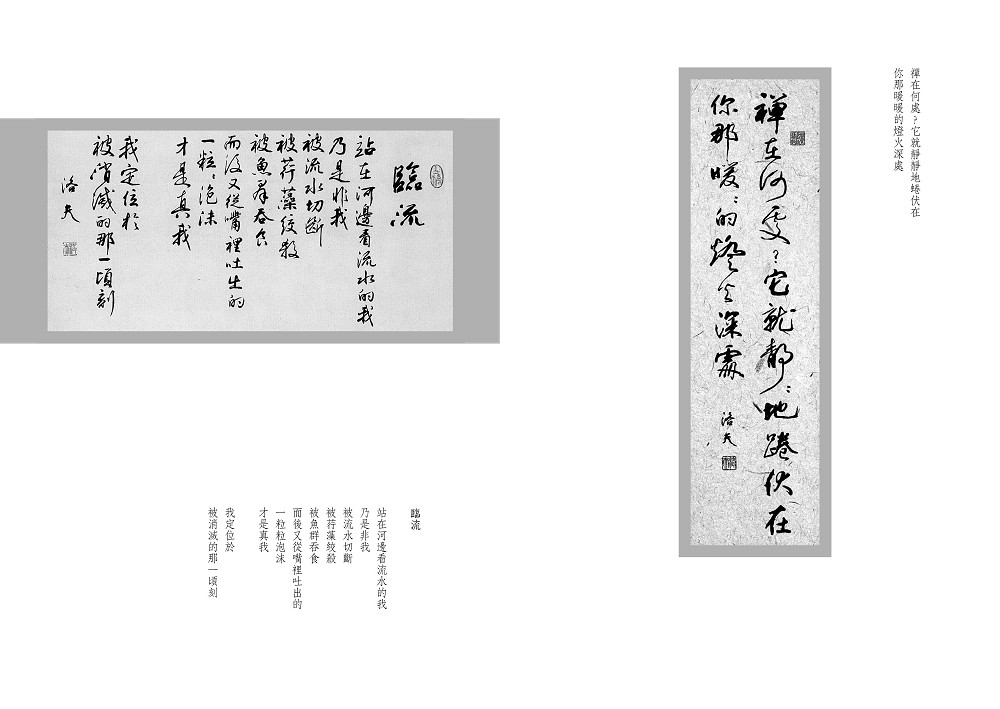 禪在何處?它就靜靜地蜷伏在
你那暖暖的燈火深處
禪在何處?它就靜〻地踡伏在
你那暖〻的燈火深處
洛夫
臨流
站在河邊看流水的我
乃是非我
被流水切斷
被荇藻絞殺
被魚群吞食
而後又從嘴裡吐出的
一粒〻泡沫
才是真我
我定位於
被消滅的那一頃刻
洛夫
臨流
站在河邊看流水的我
乃是非我
被流水切斷
被荇藻絞殺
被魚群吞食
而後又從嘴裡吐出的
一粒粒泡沫
才是真我
我定位於
被消滅的那一頃刻